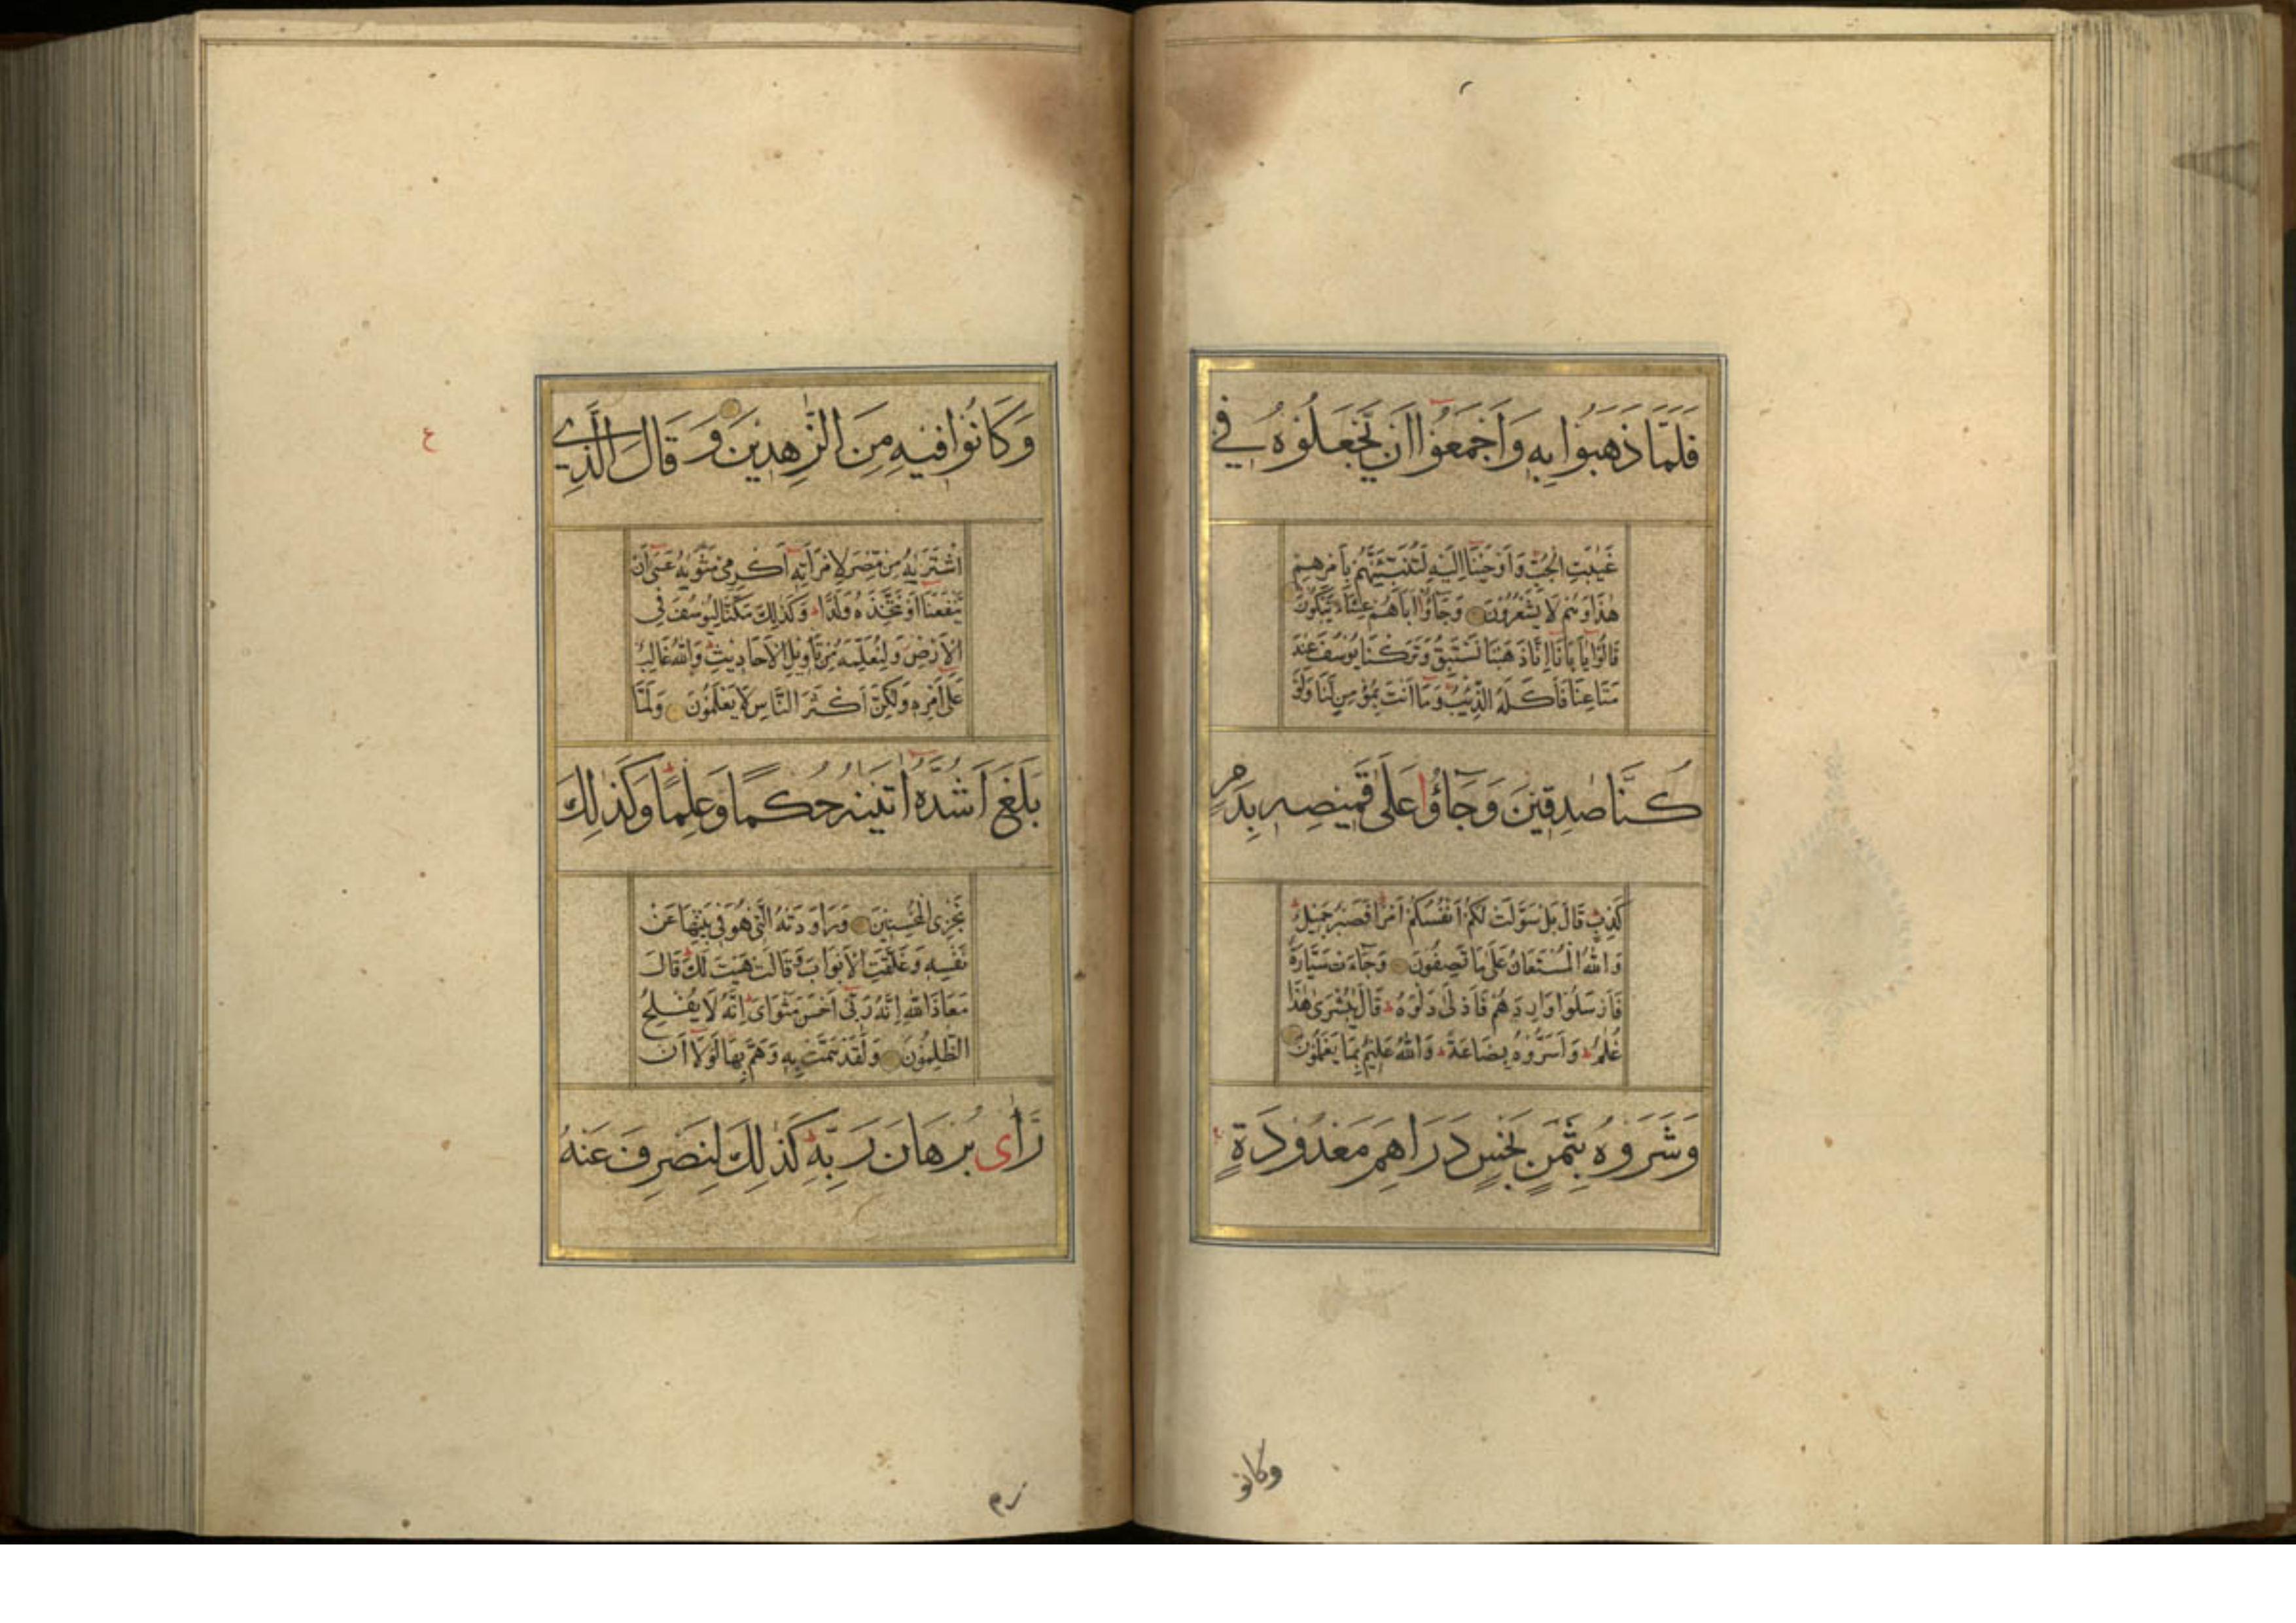 فَلَمَّا ذَهَبُوا بِهِ وَاَجْمَعُوا اَنْ يَجْعَلُوهُ فِي
غَيٰبَتِ الْجُبِّ وَاَوْحَيْنَا اِلَيْهِ لَتُنَبِّئَنَّهُمْ بِاَمْرِهِمْ
هٰذَا وَهُمْ لَا يَشْعُرُونَ وَجَاؤُا اَبَاهُمْ عِشَاءً يَبْكُونَ
قَالُوا يَا اَبَانَا اِنَّا ذَهَبْنَا نَسْتَبِقُ وَتَرَكْنَا يُوسُفَ عِنْدَ
مَتَاعِنَا فَاَكَلَهُ الذِّئْبُ وَمَا اَنْتَ بِمُؤْمِنٍ لَنَا وَلَوْ
كُنَّا صٰدِقِيْنَ وَجَاؤُا عَلٰى قَمِيْصِهِ بِدَمٍ
كَذِبٍ قَالَ بَلْ سَوَّلَتْ لَكُمْ اَنْفُسُكُمْ اَمْرًا فَصَبْرٌ جَمِيْلٌ
وَاللّٰهُ الْمُسْتَعَانُ عَلٰى مَا تَصِفُوْنَ وَجَاءَتْ سَيَّارَةٌ
فَاَرْسَلُوا وَارِدَهُمْ فَاَدْلٰى دَلْوَهُ قَالَ يٰبُشْرٰى هٰذَا
غُلٰمٌ وَاَسَرُّوهُ بِضَاعَةً وَاللّٰهُ عَلِيْمٌ بِمَا يَعْمَلُوْنَ
وَشَرَوْهُ بِثَمَنٍ بَخْسٍ دَرَاهِمَ مَعْدُوْدَةٍ
وكانو
وَكَانُوا فِيْهِ مِنَ الزّٰهِدِيْنَ وَقَالَ الَّذِي
اشْتَرٰيهُ مِنْ مِصْرَ لِامْرَاَتِهِ اَكْرِمِيْ مَثْوٰيهُ عَسٰى اَنْ
يَنْفَعَنَا اَوْ نَتَّخِذَهُ وَلَدًا وَكَذٰلِكَ مَكَّنَّا لِيُوسُفَ فِي
الْاَرْضِ وَلِنُعَلِّمَهُ مِنْ تَأْوِيْلِ الْاَحَادِيْثِ وَاللّٰهُ غَالِبٌ
عَلٰى اَمْرِهِ وَلٰكِنَّ اَكْثَرَ النَّاسِ لَا يَعْلَمُوْنَ وَلَمَّا
بَلَغَ اَشُدَّهُ اٰتَيْنٰهُ حُكْمًا وَعِلْمًا وَكَذٰلِكَ
نَجْزِى الْمُحْسِنِيْنَ وَرَاوَدَتْهُ الَّتِيْ هُوَ فِيْ بَيْتِهَا عَنْ
نَفْسِهِ وَغَلَّقَتِ الْاَبْوَابَ وَقَالَتْ هَيْتَ لَكَ قَالَ
مَعَاذَ اللّٰهِ اِنَّهُ رَبِّيْ اَحْسَنَ مَثْوَايَ اِنَّهُ لَا يُفْلِحُ
الظّٰلِمُوْنَ وَلَقَدْ هَمَّتْ بِهِ وَهَمَّ بِهَا لَوْلَا اَنْ
رَاٰى بُرْهَانَ رَبِّهِ كَذٰلِكَ لِنَصْرِفَ عَنْهُ
ع